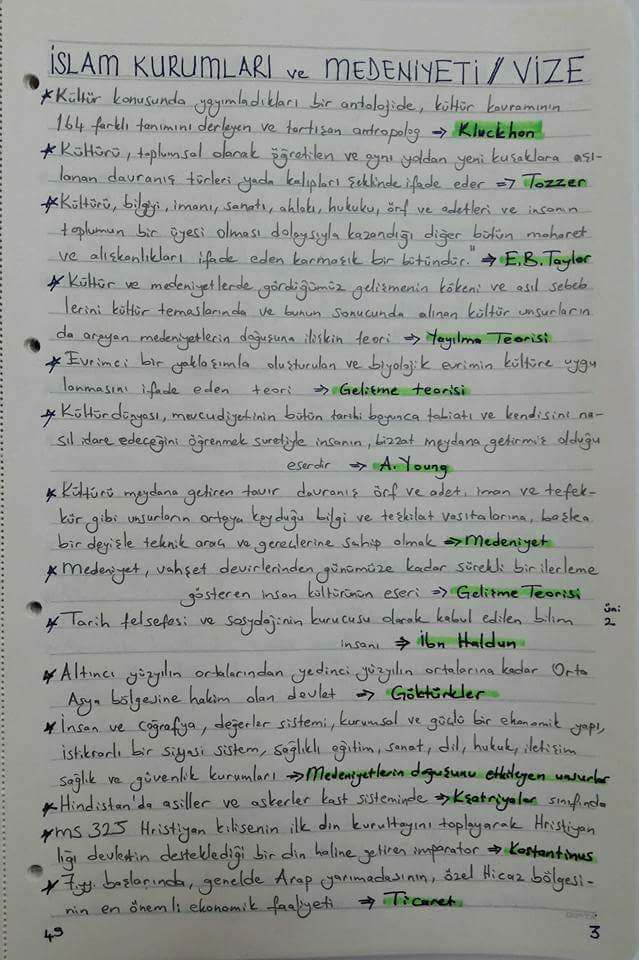 İSLAM KURUMLARI ve MEDENİYETİ / VİZE
* Kültür konusunda yayımladıkları bir antolojide, kültür kavramının
164 farklı tanımını derleyen ve tartışan antropolog => Kluckhon
* Kültürü, toplumsal olarak öğretilen ve aynı yoldan yeni kuşaklara aşı-
lanan davranış türleri yada kalıpları şeklinde ifade eder => Tozzer
* Kültürü, bilgiyi, imanı, sanatı, ahlakı, hukuku, örf ve adetleri ve insanın
toplumun bir üyesi olması dolaysıyla kazandığı diğer bütün maharet
ve alışkanlıkları ifade eden karmaşık bir bütündür." => E.B. Taylor
* Kültür ve medeniyetlerde gördüğümüz gelişmenin kökeni ve asıl sebeb
lerini kültür temaslarında ve bunun sonucunda alınan kültür unsurların
da arayan medeniyetlerin doğuşuna ilişkin teori => Yayılma Teorisi
* Evrimci bir yaklaşımla oluşturulan ve biyolojik evrimin kültüre uygu
lanmasını ifade eden teori => Gelişme teorisi
* Kültür dünyası, mevcudiyetinin bütün tarihi boyunca tabiatı ve kendisini na-
sıl idare edeceğini öğrenmek suretiyle insanın, bizzat meydana getirmiş olduğu
eserdir => A. Young
* Kültürü meydana getiren tavır davranış örf ve adet, iman ve tefek-
kür gibi unsurların ortaya koyduğu bilgi ve teşkilat vasıtalarına, başka
bir deyişle teknik araç ve gereçlerine sahip olmak => Medeniyet
* Medeniyet, vahşet devirlerinden günümüze kadar sürekli bir ilerleme
gösteren insan kültürünün eseri => Gelişme Teorisi
üni
2
* Tarih felsefesi ve sosyolojinin kurucusu olarak kabul edilen bilim
insanı => İbn Haldun
* Altıncı yüzyılın ortalarından yedinci yüzyılın ortalarına kadar Orta
Asya bölgesine hakim olan devlet => Göktürkler
* İnsan ve coğrafya, değerler sistemi, kurumsal ve güçlü bir ekonomik yapı,
istikrarlı bir siyasi sistem, sağlıklı eğitim, sanat, dil, hukuk, iletişim
sağlık ve güvenlik kurumları => Medeniyetlerin doğuşunu etkileyen unsurlar
* Hindistan'da asiller ve askerler kast sisteminde => Kşatriyalar sınıfında
* ms 325 Hristiyan kilisenin ilk din kurultayını toplayarak Hristiyan
lığı devletin desteklediği bir din haline getiren imparator => Kostantinus
* 7.yy. başlarında, genelde Arap yarımadasının, özel Hicaz bölgesi-
nin en önemli ekonomik faaliyeti => Ticaret
49
3